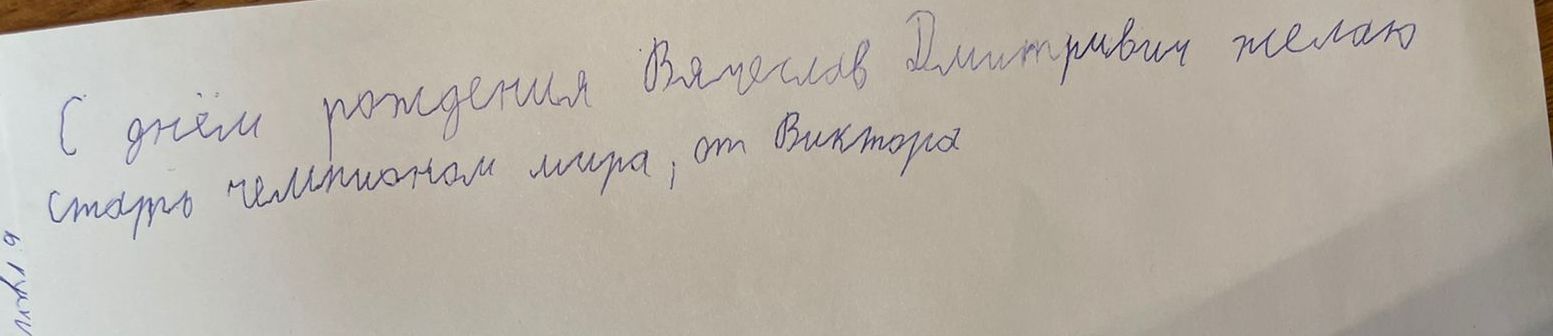 С днём рождения Вячеслав Дмитривич желаю
стать чемпионом мира, от Виктора